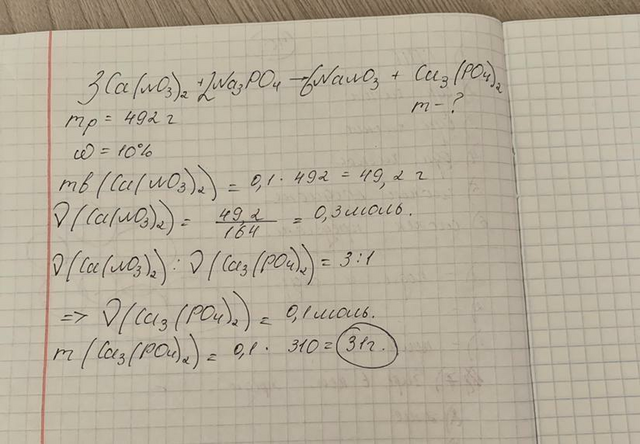 3Ca(NO3)2 + 2Na3PO4 → 6NaNO3 + Ca3(PO4)2
mр = 492 г
m - ?
ω = 10%
mв (Ca(NO3)2) = 0,1 · 492 = 49,2 г
ν (Ca(NO3)2) = 49,2 / 164 = 0,3 моль.
ν (Ca(NO3)2) : ν (Ca3(PO4)2) = 3:1
=> ν (Ca3(PO4)2) = 0,1 моль.
m (Ca3(PO4)2) = 0,1 · 310 = 31г.